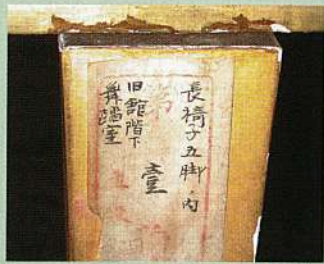 長椅子五脚ノ内
壹
旧館階下
舞踏室